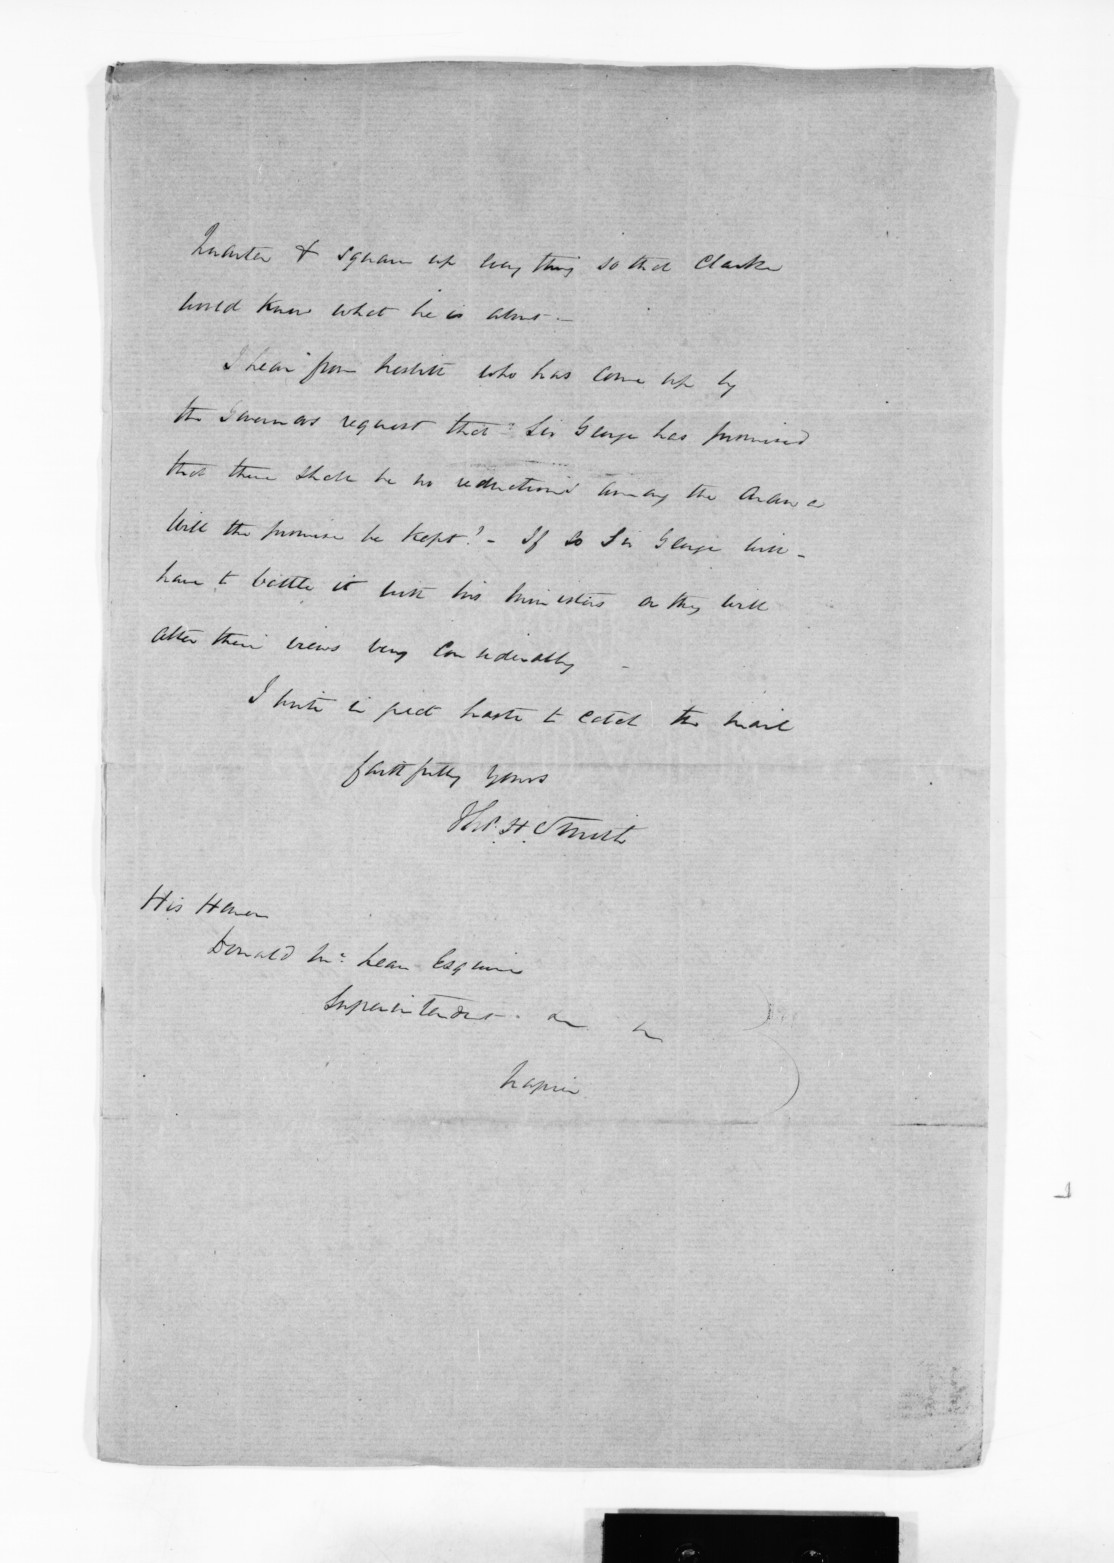 Quarter & square up every thing so that Clarke
would know what he is about –
I hear from Nesbitt who has come up by
the Governors request that "Sir George has promised
that there shall be no reductions" among the
Will the promise be kept? – If so Sir George will –
have to battle it with his ministers or they will
alter their views very considerably –
I write in great haste to catch the mail
faithfully yours
Thos. H. Smith
His Honor
Donald McLean Esquire
Superintendent
Napier